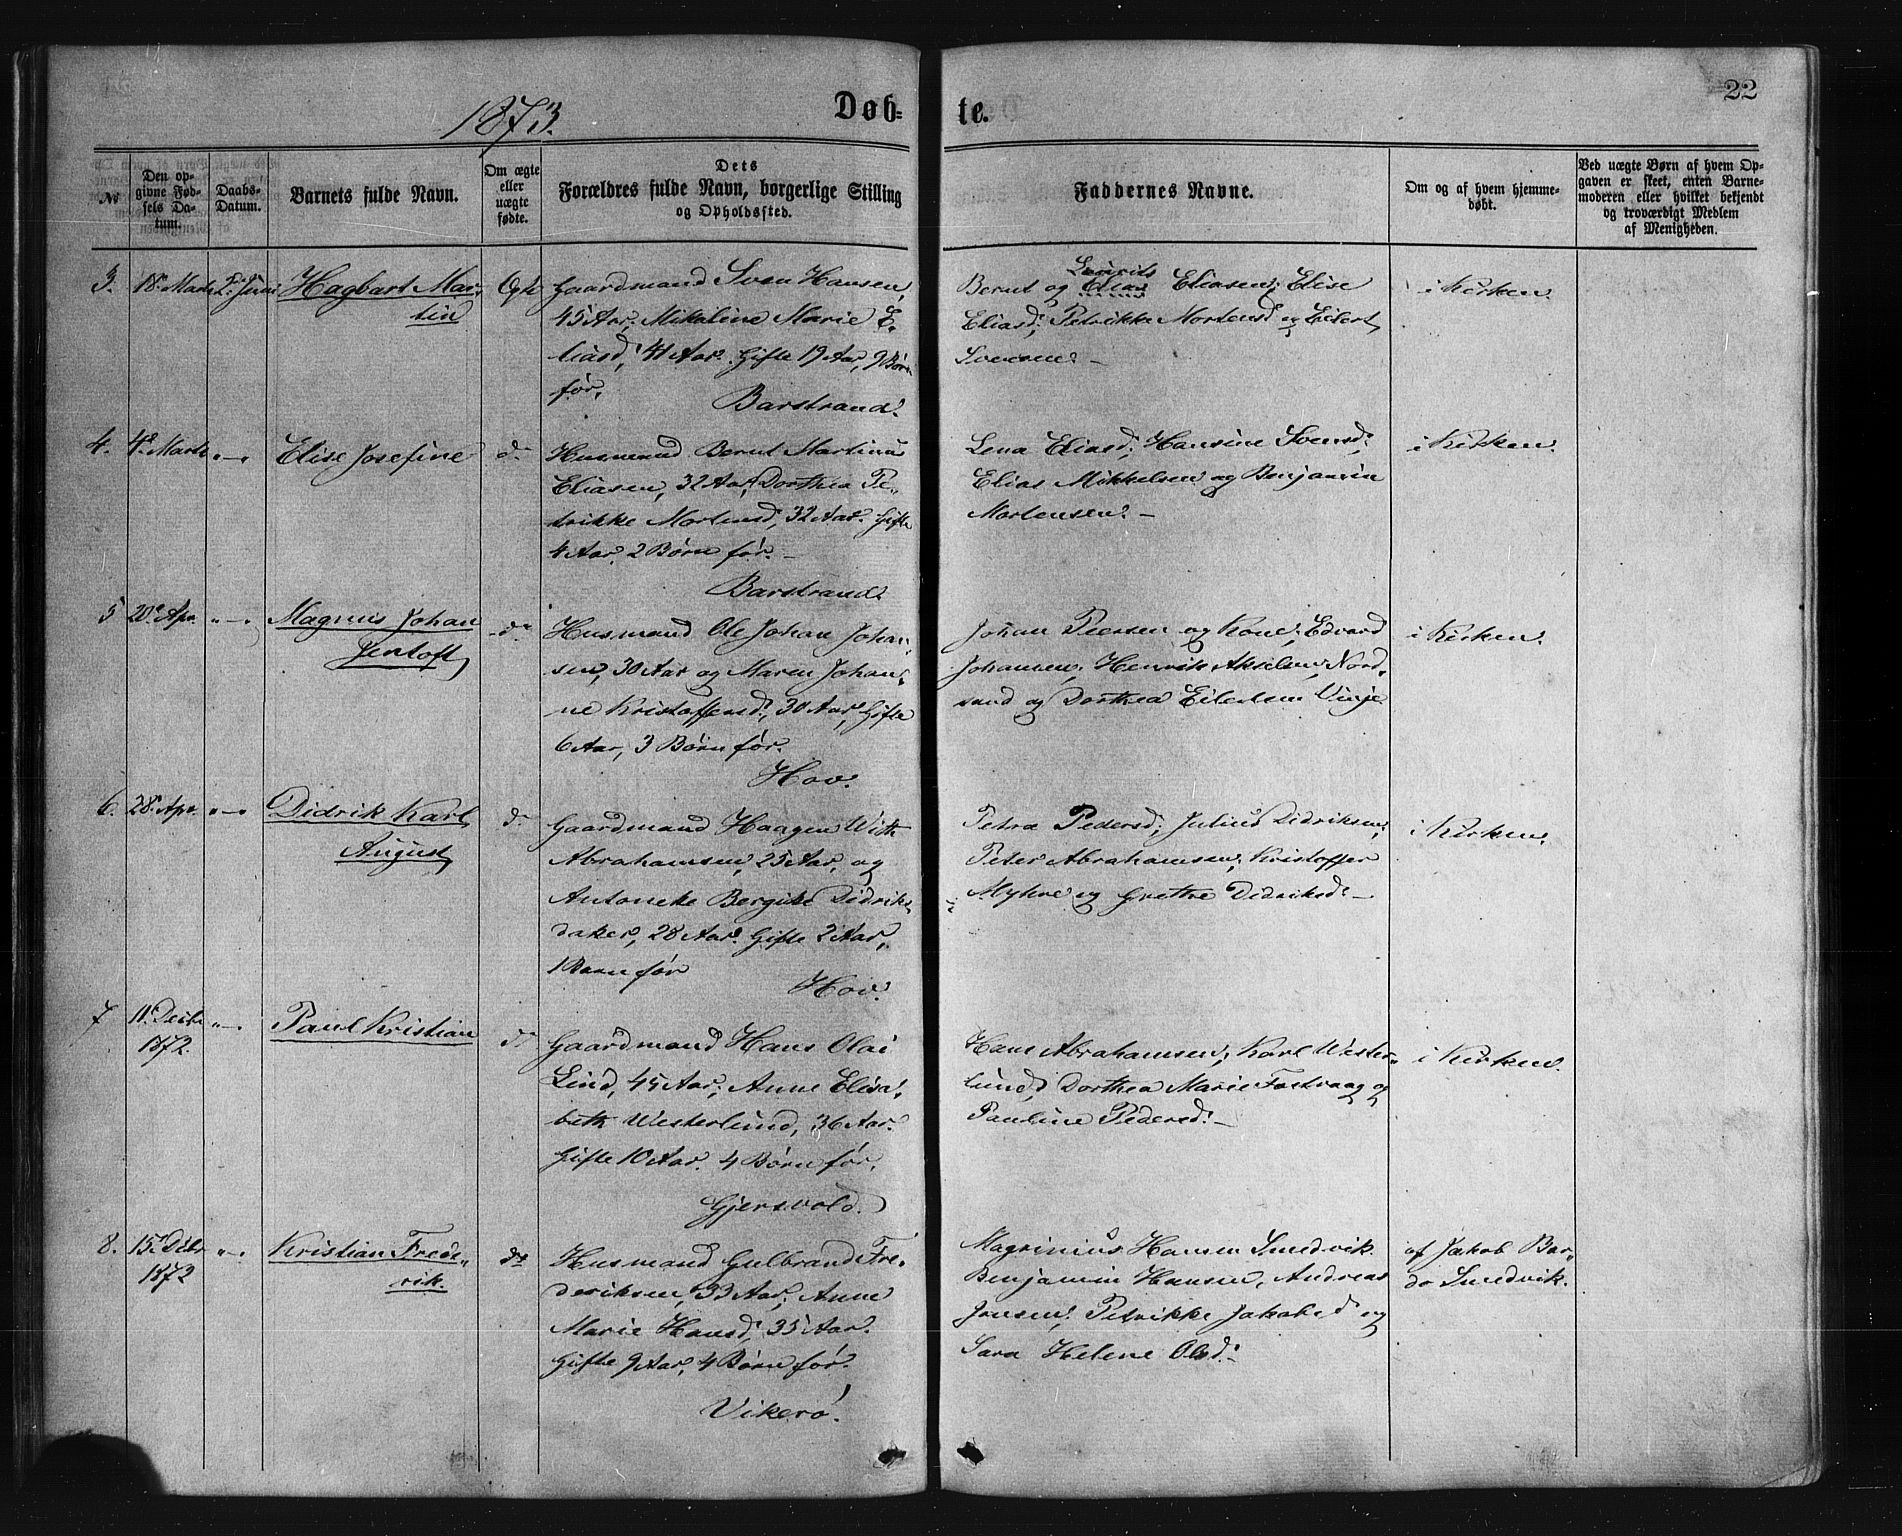 22
1873.
Døb=
te.
№
Den op-
givne Fød-
sels Da-
tum.
Daabs-
Datum.
Barnets fulde Navn.
Om ægte
eller
uægte
fødte.
Dets
Forældres fulde Navn, borgerlige Stilling
og Opholdssted.
Faddernes Navne.
Om og af hvem hjemme-
døbt.
Ved uægte Børn af hvem Op-
gaven er skeet, enten Barne-
moderen eller hvilket bekjendt
og troværdigt Medlem
af Menigheden.
3.
18. Marts
2. Juni
Hagbart Mar-
tin
Ægte
Gaardmand Sven Hansen,
45 Aar; Mikaline Marie E-
liasd; 41 Aar. Gifte 19 Aar, 9 Børn
før.
Barstrand.
Laurits
Bernt og Elias Eliasen; Elise
Eliasd; Petrikke Mortensd og Eilert
Svensen. –
i Kirken.
4.
4. Marts
" — "
Elise Josefine
do
Husmand Bernt Martinus
Eliasen, 32 Aar, Dorthea Pe-
trikke Mortensd, 32 Aar. Gifte
4 Aar. 2 Børn før. –
Barstrand.
Lena Eliasd; Hansine Svensd;
Elias Mikkelsen og Benjamin
Mortensen. –
i Kirken.
5
20. Apr.
" — "
Magnus Johan
Jentoft
do
Husmand Ole Johan Johan-
sen, 30 Aar og Maren Johan-
ne Kristoffersd; 30 Aar, Gifte
6 Aar, 3 Børn før.
Hov.
Johan Peersen og Kone; Edvard
Johansen; Henrik Akselsen Nord-
sand og Dorthea Eilertsen Vinje
i Kirken.
6.
28. Apr.
" — "
Didrik Karl
August
do
Gaardmand Haagen With
Abrahamsen, 25 Aar, og
Antoneke Bergite Didriks-
daker, 28 Aar. Gifte 2 Aar,
1 Barn før
Hov.
Petra Pedersd; Julius Didriksen;
Peter Abrahamsen; Kristoffer
Myhre og Grethe Didriksd. –
i Kirken.
7
11. Decbr
1872.
" — "
Paul Kristian
do
Gaardmand Hans Olai
Lind, 45 Aar; Anne Elisa-
beth Westerlund, 36 Aar.
Gifte 10 Aar. 4 Børn før.
Gjersvold.
Hans Abrahamsen; Karl Wester-
lund; Dorthea Marie Fostvaag og
Pauline Pedersd. –
i Kirken.
8.
15. Decbr
1872
" — "
Kristian Frede-
rik.
do
Husmand Gulbrand Fre-
deriksen, 33 Aar; Anne
Marie Hansd; 35 Aar.
Gifte 9 Aar, 4 Børn før.
Vikerø.
Magninius Hansen Smedvik
Benjamin Hansen, Andreas
Jensen; Petrikke Jakobsd og
Sara Helene Olsd. –
af Jakob Bar-
do Smedvik.